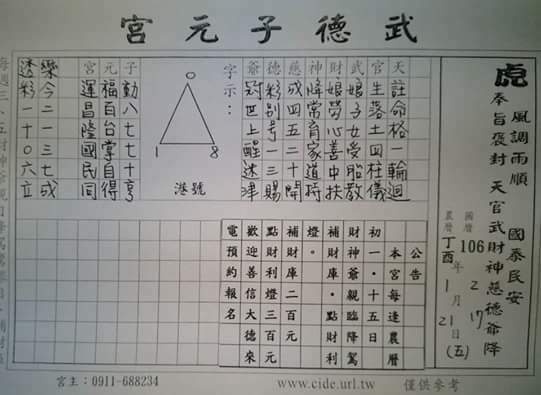 武德子元宮
虎
風調雨順 國泰民安
奉旨褒封 天官武財神慈德爺降
國曆 106 年 2 月 17 日 (五)
農曆 丁酉 年 1 月 21 日
天註命格一輪迴
官生落土四柱儀
武娘子女受胎教
財娘勞心善中扶
神降常育家道時
慈成四五二十開
德彩別号一三賜
爺到世上醒迷津
字示：
0
1 8
港號
子勸八七七十亨
元福百台掌自得
宮運昌隆國民同
樂今二一三七成
透彩一十0六立
公告
本宮每逢農曆
初一、十五日
財神爺親臨降駕
補財庫、點財利
燈。
補財庫二百元
點財利燈三百元
歡迎善信大德來
電預約報名
宮主：0911-688234
www.cide.url.tw
僅供參考